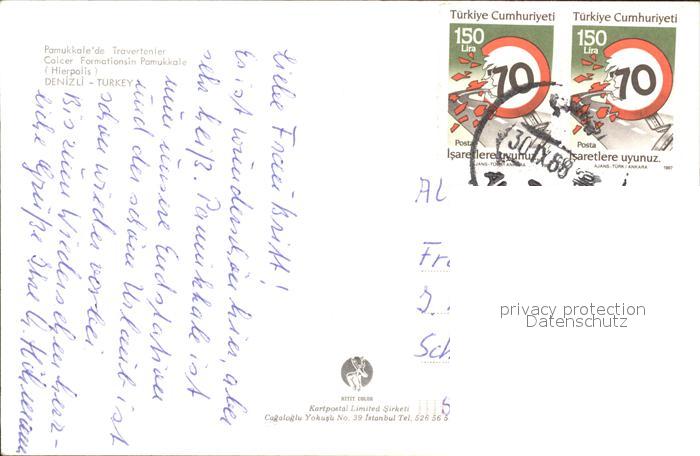 Pamukkale'de Travertenler
Calcer Formationsin Pamukkale
(Hierpolis)
DENİZLİ - TURKEY
Liebe Frau Britt!
Es ist wunderschön hier, aber
sehr heiß. Pamukkale ist
nun unsere Endstation
und der schöne Urlaub ist
schon wieder vorbei
Bis zum Wiedersehen herz-
liche Grüße Ihre
Türkiye Cumhuriyeti
150
Lira
70
Posta
İşaretlere uyunuz.
AJANS-TÜRK / ANKARA
Türkiye Cumhuriyeti
150
Lira
70
Posta
İşaretlere uyunuz.
AJANS-TÜRK / ANKARA 1987
30 IX 88
Al
Fr
J.
Sch
5
privacy protection
Datenschutz
HITIT COLOR
Kartpostal Limited Şirketi
Cağaloğlu Yokuşu No. 39 İstanbul Tel. 526 56 5